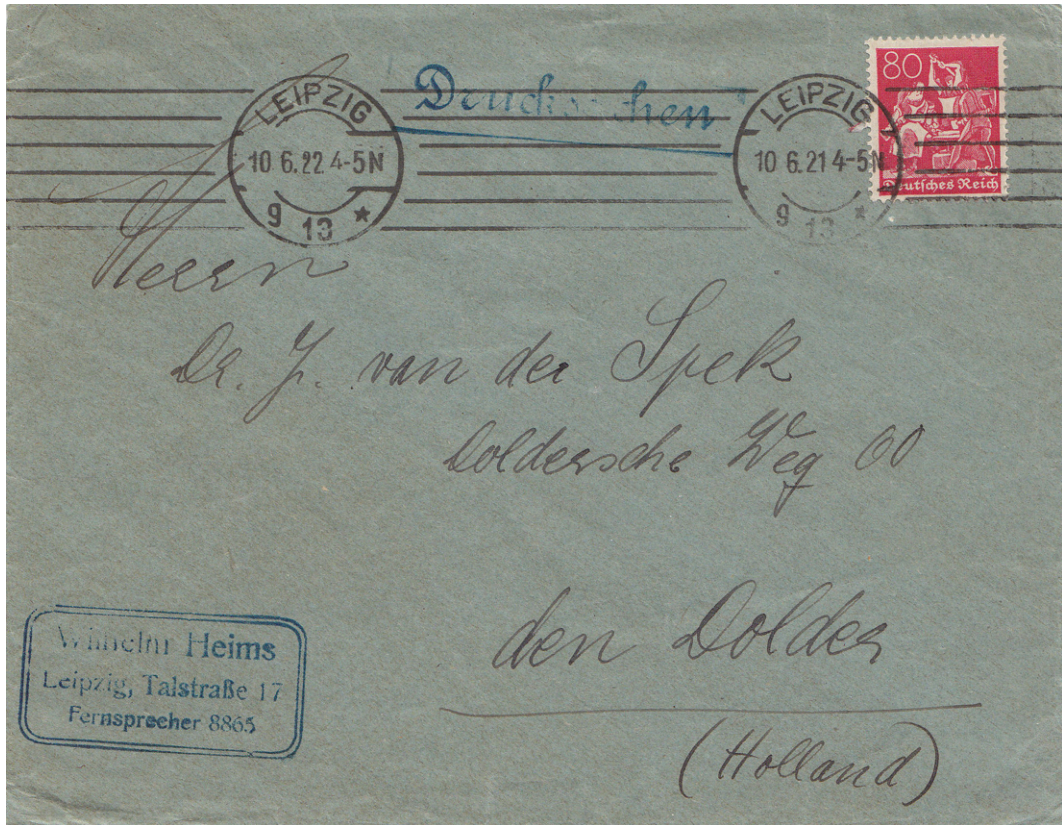 Drucksachen
LEIPZIG
10 6.22 4-5N
9 13 *
LEIPZIG
10 6.21 4-5N
9 13 *
80
Deutsches Reich
Herrn
Dr. J. van der Spek
Doldersche Weg 60
den Dolder
(Holland)
Wilhelm Heims
Leipzig, Talstraße 17
Fernsprecher 8865